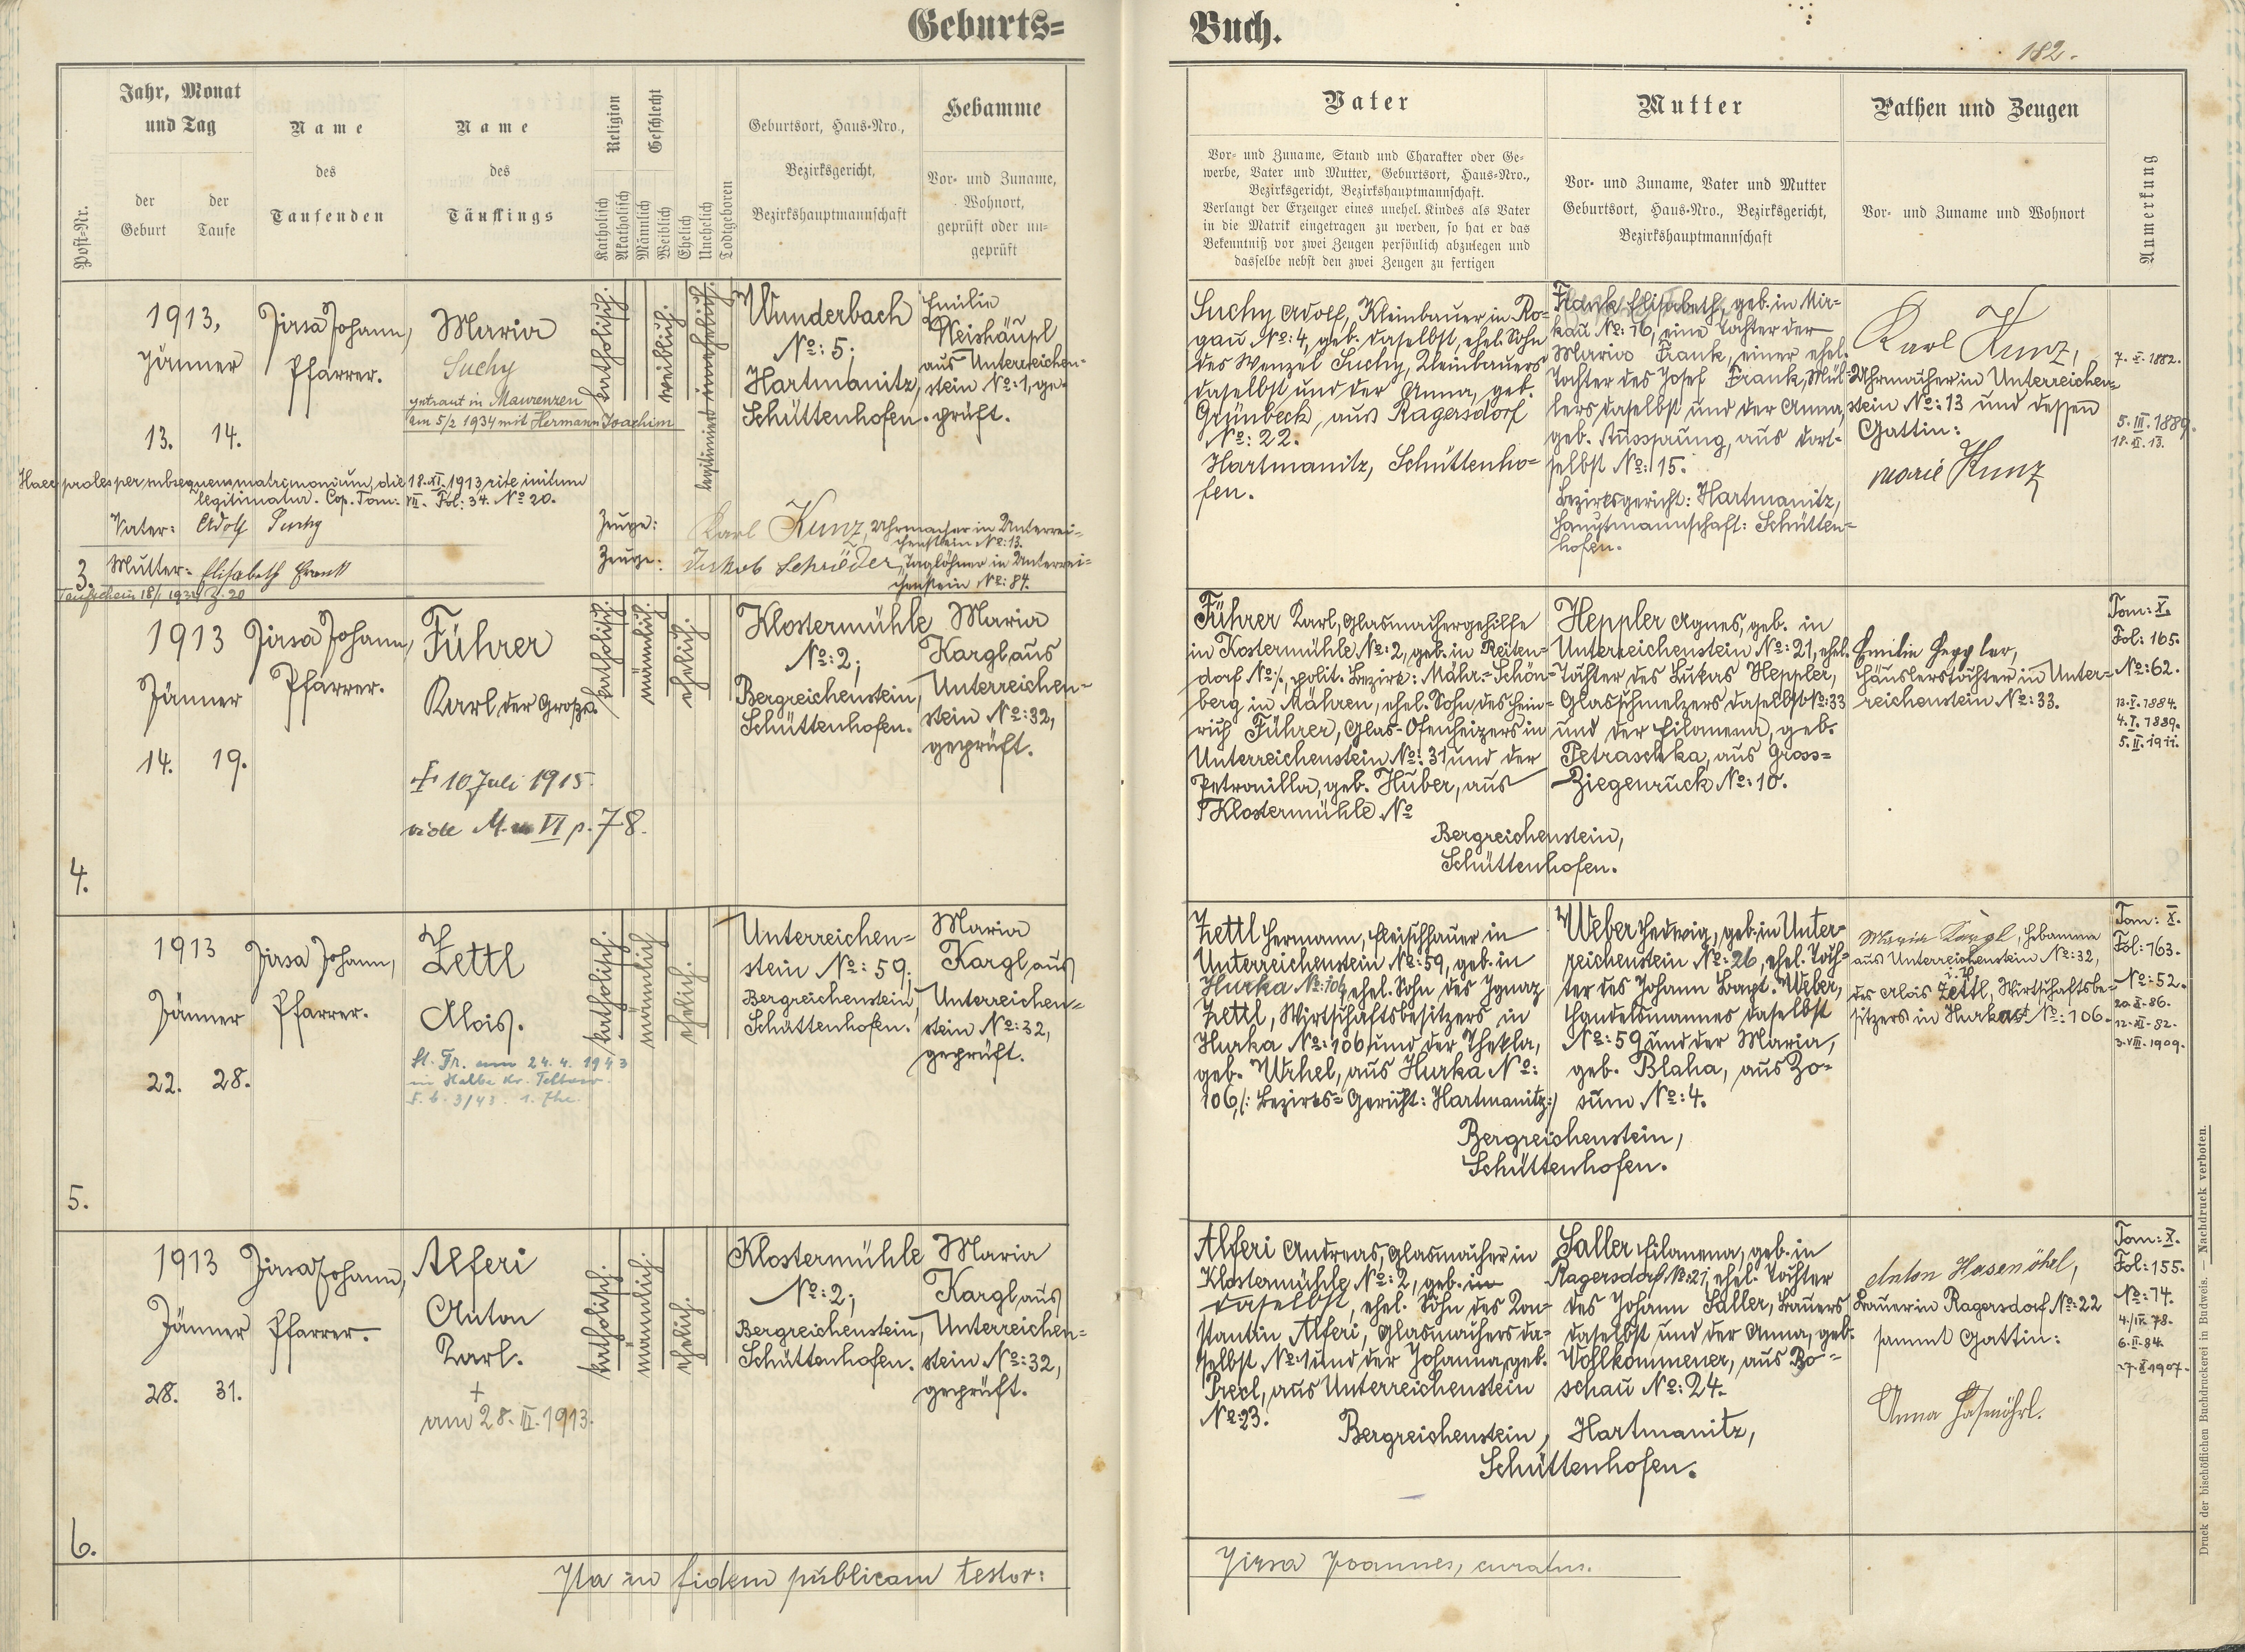 Geburts=
Buch.
182.
Post-Nr.
Jahr, Monat
und Tag
der
Geburt
der
Taufe
Name
des
Taufenden
Name
des
Täuflings
Religion
Katholisch
Akatholisch
Geschlecht
Männlich
Weiblich
Ehelich
Unehelich
Todtgeboren
Geburtsort, Haus-Nro.,
Bezirksgericht,
Bezirkshauptmannschaft
Hebamme
Vor- und Zuname,
Wohnort,
geprüft oder un-
geprüft
Vater
Vor- und Zuname, Stand und Charakter oder Ge-
werbe, Vater und Mutter, Geburtsort, Haus-Nro.,
Bezirksgericht, Bezirkshauptmannschaft.
Verlangt der Erzeuger eines unehel. Kindes als Vater
in die Matrik eingetragen zu werden, so hat er das
Bekenntniß vor zwei Zeugen persönlich abzulegen und
dasselbe nebst den zwei Zeugen zu fertigen
Mutter
Vor- und Zuname, Vater und Mutter
Geburtsort, Haus-Nro., Bezirksgericht,
Bezirkshauptmannschaft
Pathen und Zeugen
Vor- und Zuname und Wohnort
Anmerkung
3.
1913,
Jänner
13. 14.
Jirsa Johann,
Pfarrer.
Maria
Suchy
getraut in Maurenzen
am 5/2 1934 mit Hermann Joachim
katholisch.
weiblich.
legitimiert unehelich.
Wunderbach
No: 5;
Hartmanitz,
Schüttenhofen.
Emilie
Weishäupl
aus Unterreichen-
stein No: 1, ge-
prüft.
Haec proles per subsequens matrimonium, die 18.XI.1913 rite initum
legitimatur. Cop. Tom: VII. Fol: 34. No 20.
Vater: Adolf Suchy
Mutter: Elisabeth Frank
Taufschein 18/1 1934 Z. 20
Zeuge: Karl Kunz, Uhrmacher in Unterrei-
chenstein No: 13.
Zeuge: Jakob Schröder, Taglöhner in Unterrei-
chenstein No: 84.
Suchy Adolf, Kleinbauer in Ro-
gau No: 4, geb. daselbst, ehel. Sohn
des Wenzel Suchy, Kleinbauers
daselbst und der Anna, geb.
Grünbeck, aus Ragersdorf
No: 22.
Hartmanitz, Schüttenho-
fen.
Frank Elisabeth, geb. in Mir-
kau No: 16, eine Tochter der
Maria Frank, einer ehel.
Tochter des Josef Frank, Mül-
lers daselbst und der Anna,
geb. Aussprung, aus dort-
selbst No: 15.
Bezirksgericht: Hartmanitz,
Hauptmannschaft: Schütten-
hofen.
Karl Kunz,
Uhrmacher in Unterreichen-
stein No: 13 und dessen
Gattin:
Marie Kunz
7.X.1882.
5.III.1889.
18.XI.13.
4.
1913
Jänner
14. 19.
Jirsa Johann,
Pfarrer.
Führer
Karl der Große.
† 10 Juli 1915.
vide M. VI p. 78.
katholisch.
männlich.
ehelich.
Klostermühle
No: 2;
Bergreichenstein,
Schüttenhofen.
Maria
Kargl aus
Unterreichen-
stein No: 32,
geprüft.
Führer Karl, Glasmachergehilfe
in Kostermühle No: 2, geb. in Reiten-
dorf No: /., polit. Bezirk: Mähr.-Schön-
berg in Mähren, ehel. Sohn des Hein-
rich Führer, Glas-Ofenheizers in
Unterreichenstein No: 31 und der
Petronilla, geb. Huber, aus
Klostermühle No
Bergreichenstein,
Schüttenhofen.
Heppler Agnes, geb. in
Unterreichenstein No: 21, ehel.
Tochter des Lukas Heppler,
Glasschmelzers daselbst No: 33
und der Filomena, geb.
Petraschka, aus Gross-
Ziegenruck No: 10.
Emilie Heppler,
Häuslerstochter in Unter-
reichenstein No: 33.
Tom: X.
Fol: 165.
No: 62.
13.X.1884.
4.I.1889.
5.II.1911.
5.
1913
Jänner
22. 28.
Jirsa Johann,
Pfarrer.
Zettl
Alois.
St. Tr. am 24.4.1943
in Halbe Kr. Teltow.
F. b. 3/43. 1. Ehe.
katholisch.
männlich
ehelich.
Unterreichen-
stein No: 59;
Bergreichenstein,
Schüttenhofen.
Maria
Kargl aus
Unterreichen-
stein No: 32,
geprüft.
Zettl Hermann, Fleischhauer in
Unterreichenstein No: 59, geb. in
Hurka No: 106, ehel. Sohn des Ignaz
Zettl, Wirtschaftsbesitzers in
Hurka No: 106 und der Thekla,
geb. Urhel, aus Hurka No:
106, /: Bezirks-Gericht: Hartmanitz:/
Bergreichenstein,
Schüttenhofen.
Weber Hedwig, geb. in Unter-
reichenstein No: 26, ehel. Toch-
ter des Johann Bapt. Weber,
Handelsmannes daselbst
No: 59 und der Maria,
geb. Blaha, aus Zo-
sum No: 4.
Maria Kargl, Hebamme
aus Unterreichenstein No: 32,
i. H.
des Alois Zettl, Wirtschaftsbe-
sitzers in Hurka No: 106.
Tom: X.
Fol: 163.
No: 52.
20.X.86.
12.XI.82.
3.VIII.1909.
6.
1913
Jänner
28. 31.
Jirsa Johann,
Pfarrer.
Alferi
Anton
Karl.
+
am 28.III.1913.
katholisch.
männlich.
ehelich.
Klostermühle
No: 2;
Bergreichenstein,
Schüttenhofen.
Maria
Kargl aus
Unterreichen-
stein No: 32,
geprüft.
Alferi Andreas, Glasmacher in
Klostermühle No: 2, geb. in
daselbst, ehel. Sohn des Kon-
stantin Alferi, Glasmachers da-
selbst No: 1 und der Johanna, geb.
Precl, aus Unterreichenstein
No: 23.
Bergreichenstein,
Saller Filomena, geb. in
Ragersdorf No: 21, ehel. Tochter
des Johann Saller, Bauers
daselbst und der Anna, geb.
Vollkommener, aus Bo-
schau No: 24.
Hartmanitz,
Schüttenhofen.
Anton Hasenöhrl,
Bauer in Ragersdorf No: 22
sammt Gattin:
Anna Hasenöhrl.
Tom: X.
Fol: 155.
No: 74.
4./IX.78.
6.II.84.
27.X.1907.
Ita in fidem publicam testor:
Jirsa Joannes, curatus.
Druck der bischöflichen Buchdruckerei in Budweis. — Nachdruck verboten.